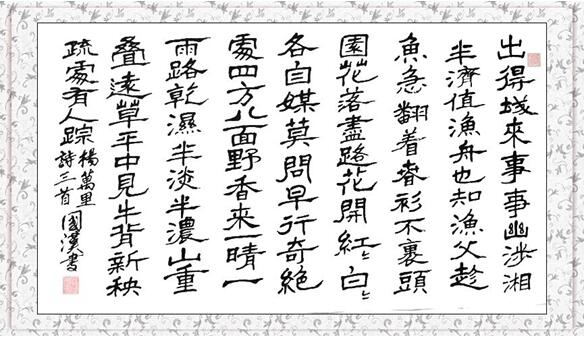 出得城來事事幽涉湘
半濟值漁舟也知漁父趁
魚急翻着春衫不裹頭
園花落盡路花開紅〻白〻
各自媒莫問早行奇絕
處四方八面野香來一晴一
雨路乾濕半淡半濃山重
叠遠草平中見牛背新秧
疏處有人踪
楊萬里
詩三首
國漢書